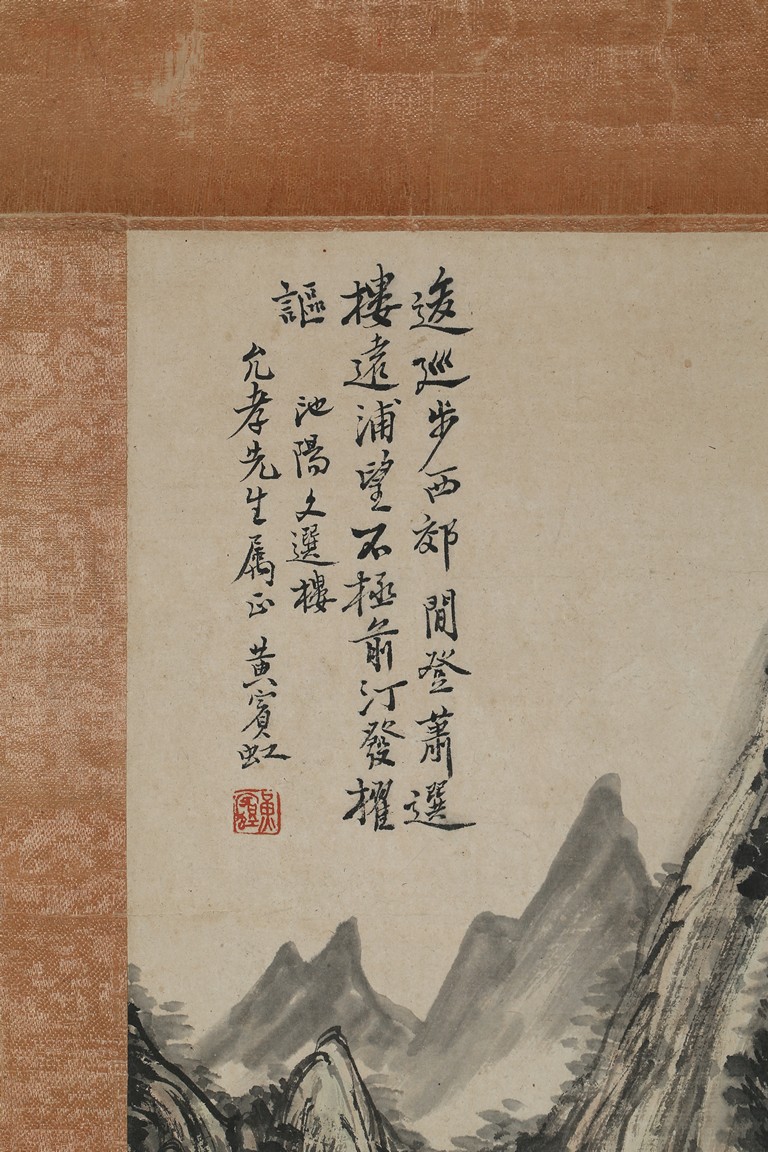 逡巡步西郊間登蕭選
樓遠浦望不極前汀發櫂
謳
池陽文選樓
允孝先生属正 黄賓虹